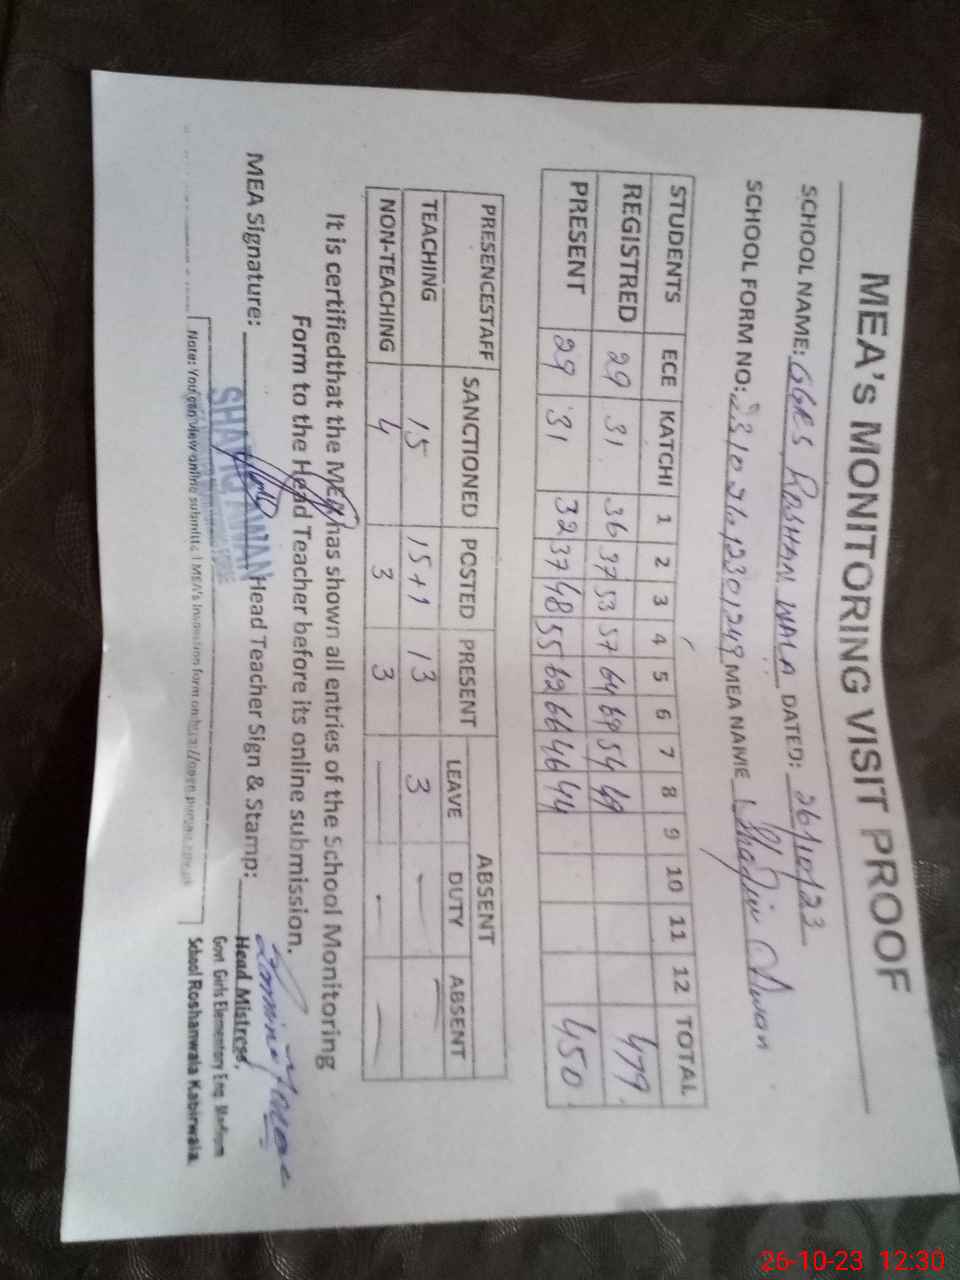 MEA's MONITORING VISIT PROOF
SCHOOL NAME: GGES ROSHAN WALA DATED: 26/10/23
SCHOOL FORM NO: MEA NAME Shafiu Awan
STUDENTS ECE KATCHI 1 2 3 4 5 6 7 8 9 10 11 12 TOTAL
REGISTRED 29 31 36 37 53 57 64 69 54 49 479
PRESENT 29 31 32 37 48 55 62 66 46 44 450
PRESENCESTAFF SANCTIONED POSTED PRESENT ABSENT
LEAVE DUTY ABSENT
TEACHING 15 15+1 13 3 — —
NON-TEACHING 4 3 3 — - —
It is certifiedthat the MEA has shown all entries of the School Monitoring
Form to the Head Teacher before its online submission.
MEA Signature: Head Teacher Sign & Stamp:
SHAFIU AWAN
Head Mistress,
Govt. Girls Elementary Eng. Medium
School Roshanwala Kabirwala.
Note: You can view online submitted MEA's Inspection form on
26-10-23 12:30